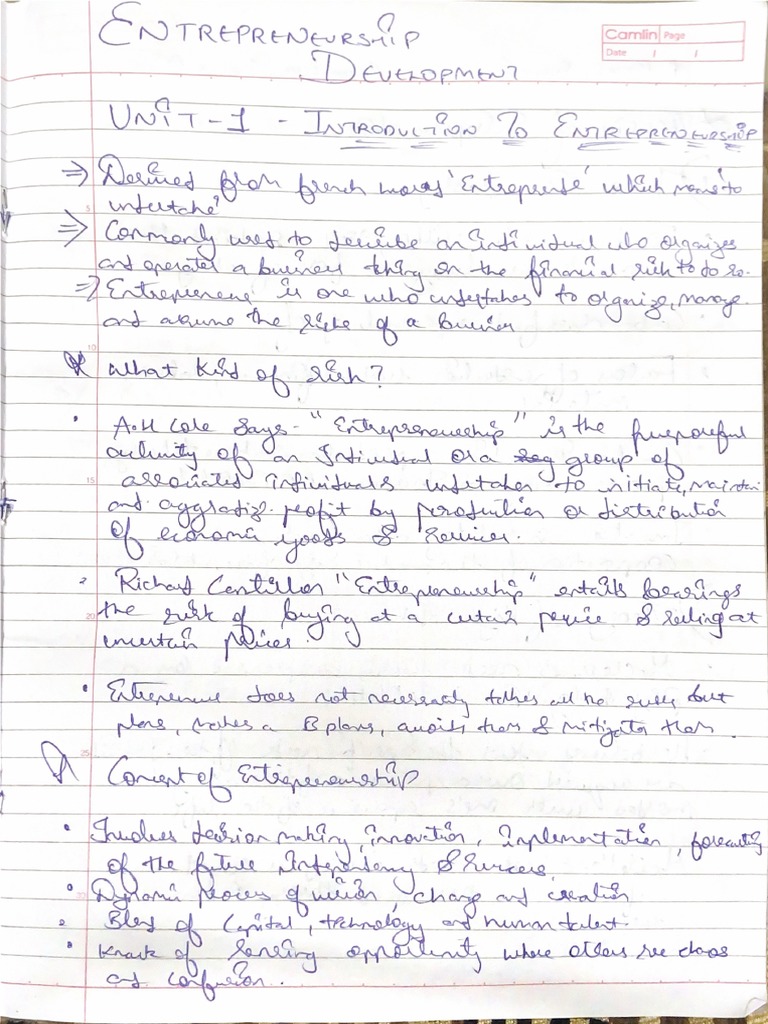 ENTREPRENEURSHIP
DEVELOPMENT
Camlin Page
Date / /
UNIT-1 - INTRODUCTION TO ENTREPRENEURSHIP
⇒ Derived from french 'Entreprende' which means to
undertake
⇒ Commonly used to describe an individual who organizes
and operates a business taking on the financial risk to do so.
⇒ Entrepreneur is one who undertakes to organize, manage
and assume the risks of a business
10
What kind of risk?
• A.H Cole says - "Entrepreneurship" is the purposeful
activity of an Individual or a group of
15
associated individuals undertaken to initiate, maintain
and profit by production or distribution
of economic goods & services.
• Richard Cantillon "Entrepreneurship" entails bearings
20
the risk of buying at a certain price & selling at
uncertain prices.
• Entrepreneur does not necessarily takes all the risks but
plans, makes a B plans, avoids them & mitigates them.
25
Concept of Entrepreneurship
• Involves decision making, innovation, implementation, forecasting
of the future independency & success
• Dynamic process of vision, change and creation
• Blend of Capital, technology and human talent.
• Knack of sensing opportunity where others see chaos
and confusion.